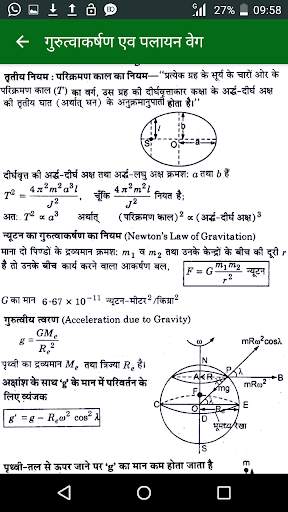 27% 09:58
गुरुत्वाकर्षण एव पलायन वेग
तृतीय नियम : परिक्रमण काल का नियम—"प्रत्येक ग्रह के सूर्य के चारों ओर के
परिक्रमण काल (T) का वर्ग, उस ग्रह की दीर्घवृत्ताकार कक्षा के अर्द्ध-दीर्घ अक्ष
की तृतीय घात (अर्थात् घन) के अनुक्रमानुपाती होता है।"
l b
S O a
दीर्घवृत्त की अर्द्ध-दीर्घ अक्ष तथा अर्द्ध-लघु अक्ष क्रमश: a तथा b हैं
T² = 4π²m²a³l / J², चूँकि 4π²m²l / J² नियत है;
अत: T² ∝ a³ अर्थात् (परिक्रमण काल)² ∝ (अर्द्ध-दीर्घ अक्ष)³
न्यूटन का गुरुत्वाकर्षण का नियम (Newton's Law of Gravitation)
माना दो पिण्डों के द्रव्यमान क्रमश: m₁ व m₂ तथा उनके केन्द्रों के बीच की दूरी r
है तो उनके बीच कार्य करने वाला आकर्षण बल, F = G m₁m₂ / r² न्यूटन
G का मान 6·67 × 10⁻¹¹ न्यूटन-मीटर²/किग्रा²
गुरुत्वीय त्वरण (Acceleration due to Gravity)
g = GMₑ / Rₑ²
पृथ्वी का द्रव्यमान Mₑ तथा त्रिज्या Rₑ है।
अक्षांश के साथ 'g' के मान में परिवर्तन के
लिए व्यंजक
g' = g – Rₑω² cos² λ
ω mRω²cosλ
N
A R P λ B
mg mRω²
F λ
C O Rₑ E
D भूमध्य रेखा
S
पृथ्वी-तल से ऊपर जाने पर 'g' का मान कम होता जाता है
m